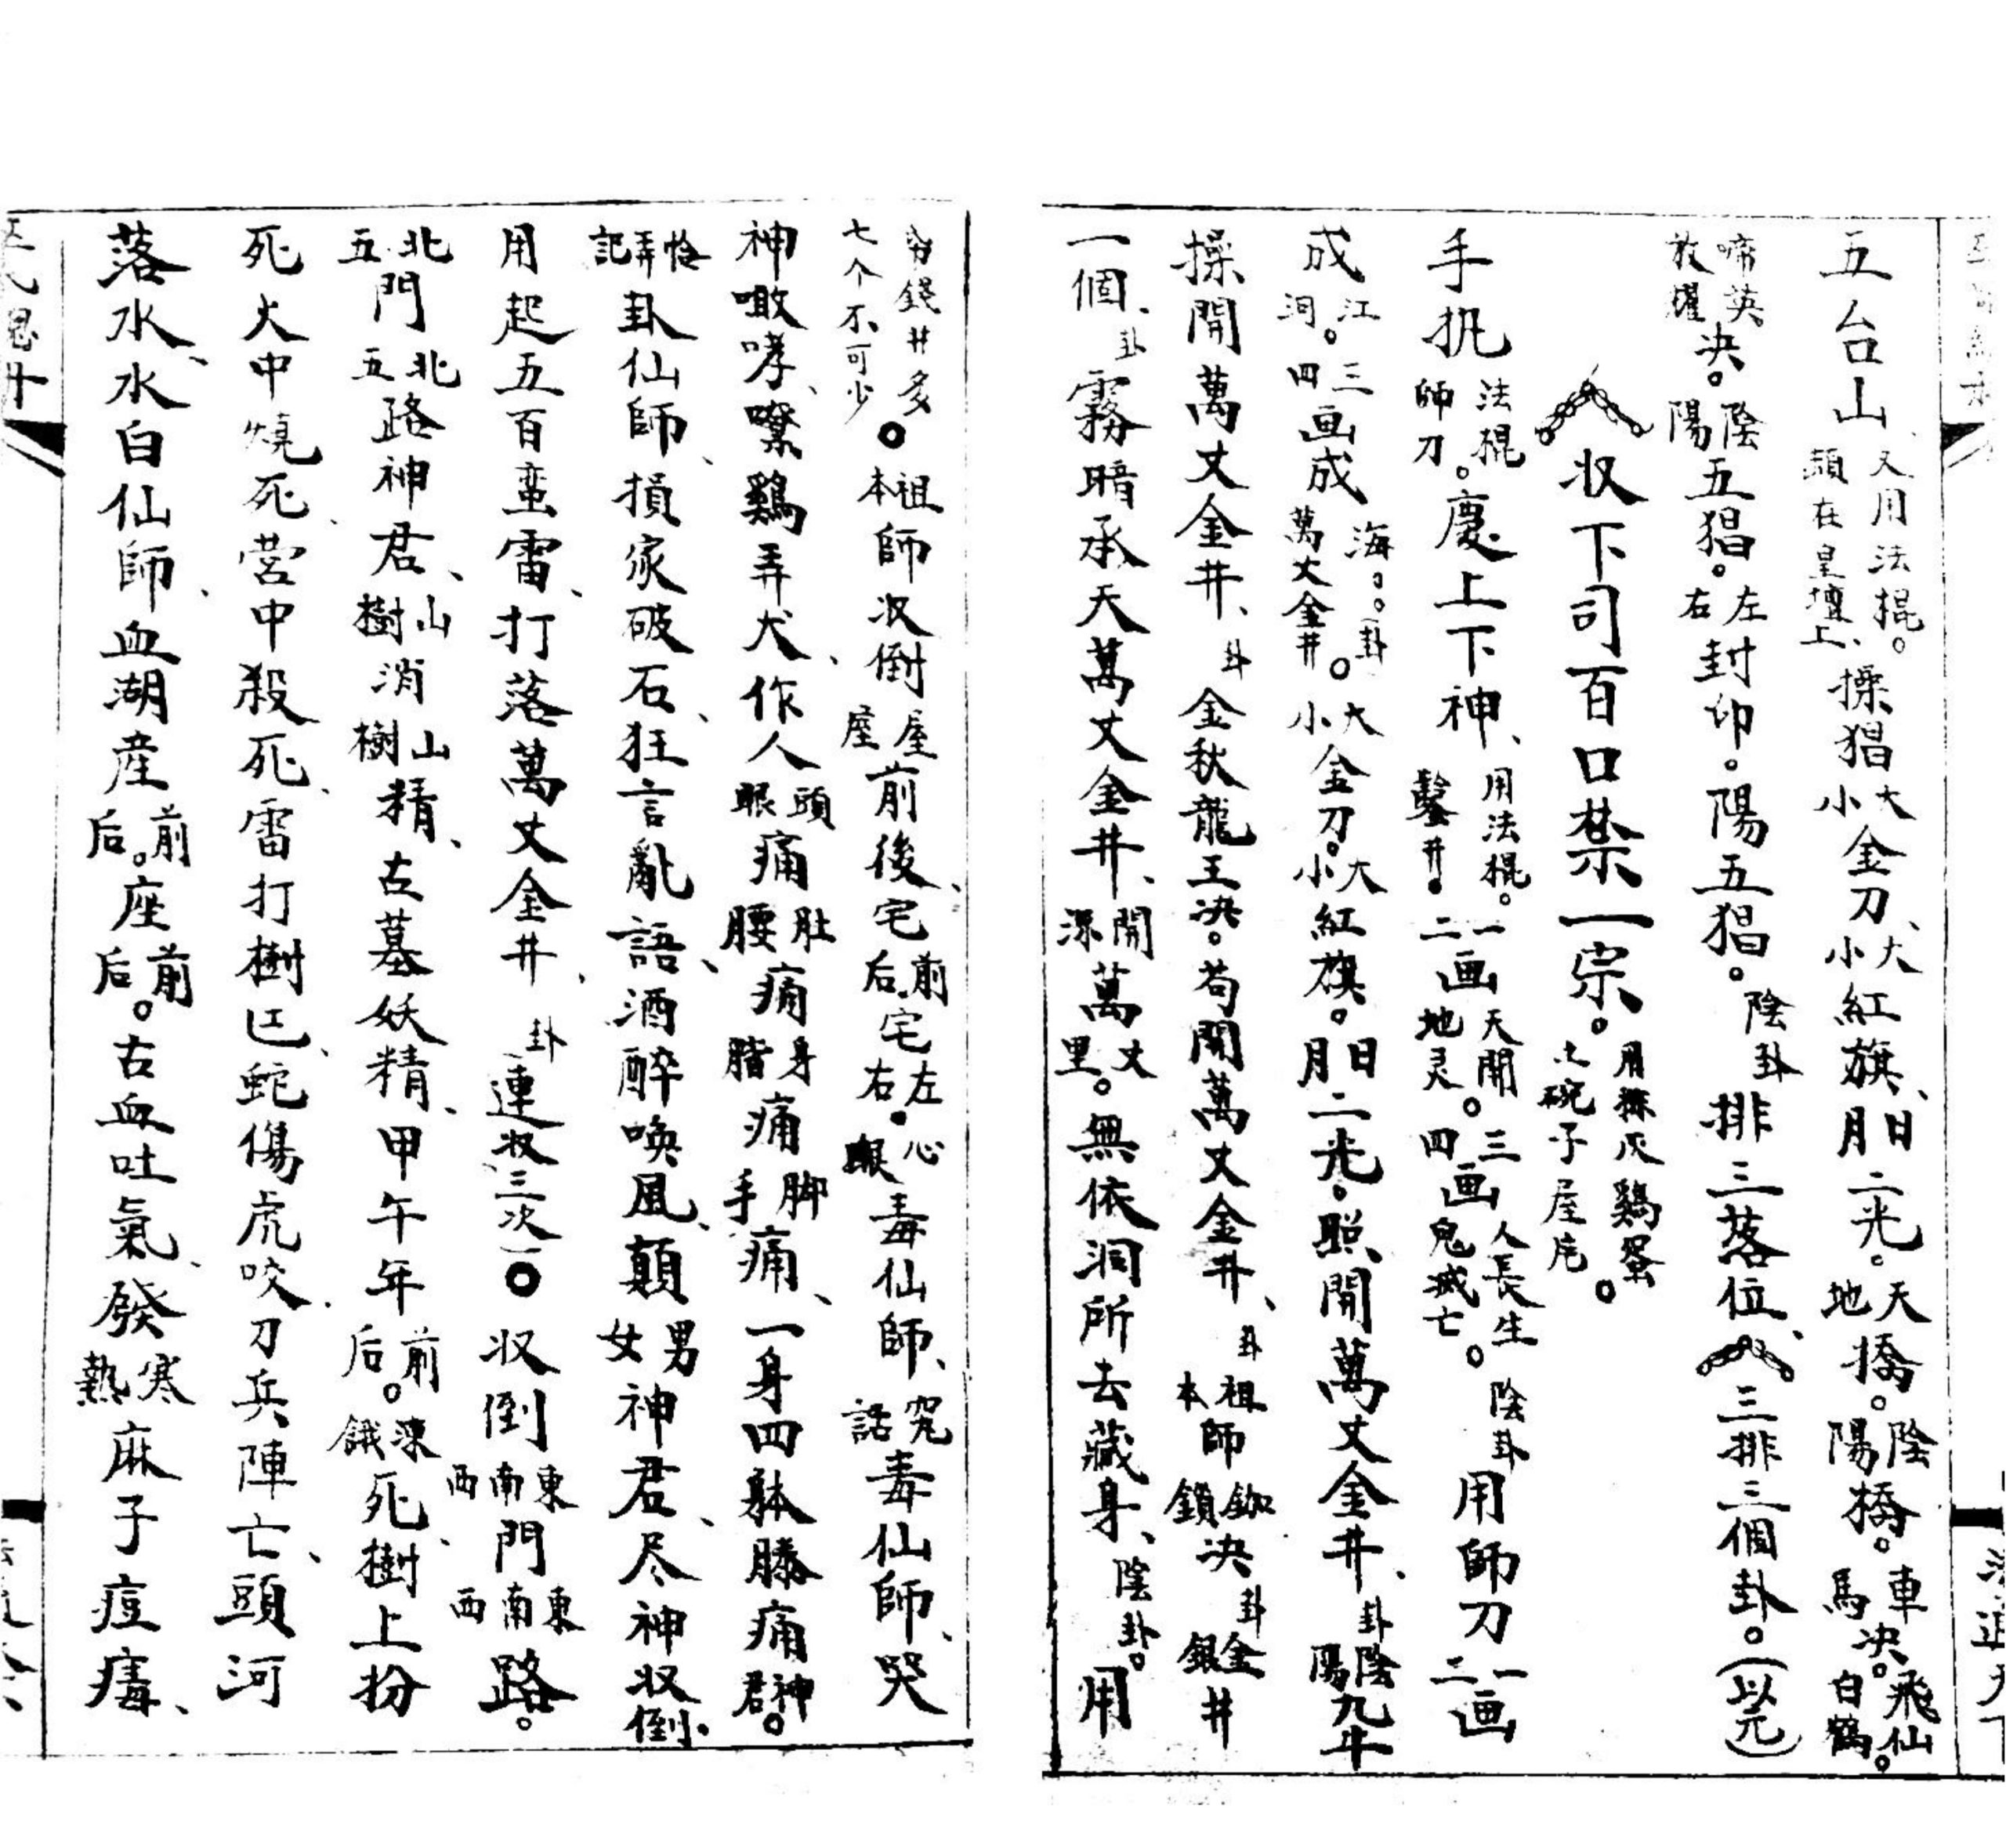 五台山、又用法棍。頭在皇壇上、操猖大小金刀、大小紅旗、日月二光。天地橋。陰陽橋。車馬决。飛仙白鶴。
啼英放權决。陰陽五猖。左右封印。陽五猖。陰卦排三落位、三排三個卦。(以元)
收下司百口禁一宗。用糠灰鷄蛋七碗子屋庀。
手扒法棍師刀。慶上下神、用法棍。鑿井。一二画天開地灵。三四画人長生鬼滅亡。陰卦用師刀一二画
成江洞。三四画成海。卦萬丈金井。大小金刀。大小紅旗。日月二光。照開萬丈金井、卦陰陽九牛
操開萬丈金井、卦金秋龍王决。苟開萬丈金井、卦祖本師鈕鎖决卦金銀井
一個、卦霧暗承天萬丈金井、開源萬丈里。無依洞所去藏身、陰卦。用
錢井多七个不可少。祖本師收倒屋座前後、宅前后宅左右。心眼毒仙師、究話毒仙師、哭
神噉哮、嘹鷄弄犬、作人頭眼痛肚腰痛身脂痛脚手痛、一身四躰滕痛神君。
怪弄記卦仙師、損家破石、狂言亂語、酒醉喚風、顛男女神君、尽神收倒。
用起五百蛮雷、打落萬丈金井、卦連收三次一。收倒東南西門東南西路。
北五門北五路神君、山樹消山樹精、古墓妖精、甲午年前后。凍餓死、樹上扮
死火中燒死、营中殺死、雷打樹匞、蛇傷虎咬、刀兵陣亡、頭河
落水、水白仙師、血湖産前后。座前后。古血吐氣、發寒熱麻子痘痗、